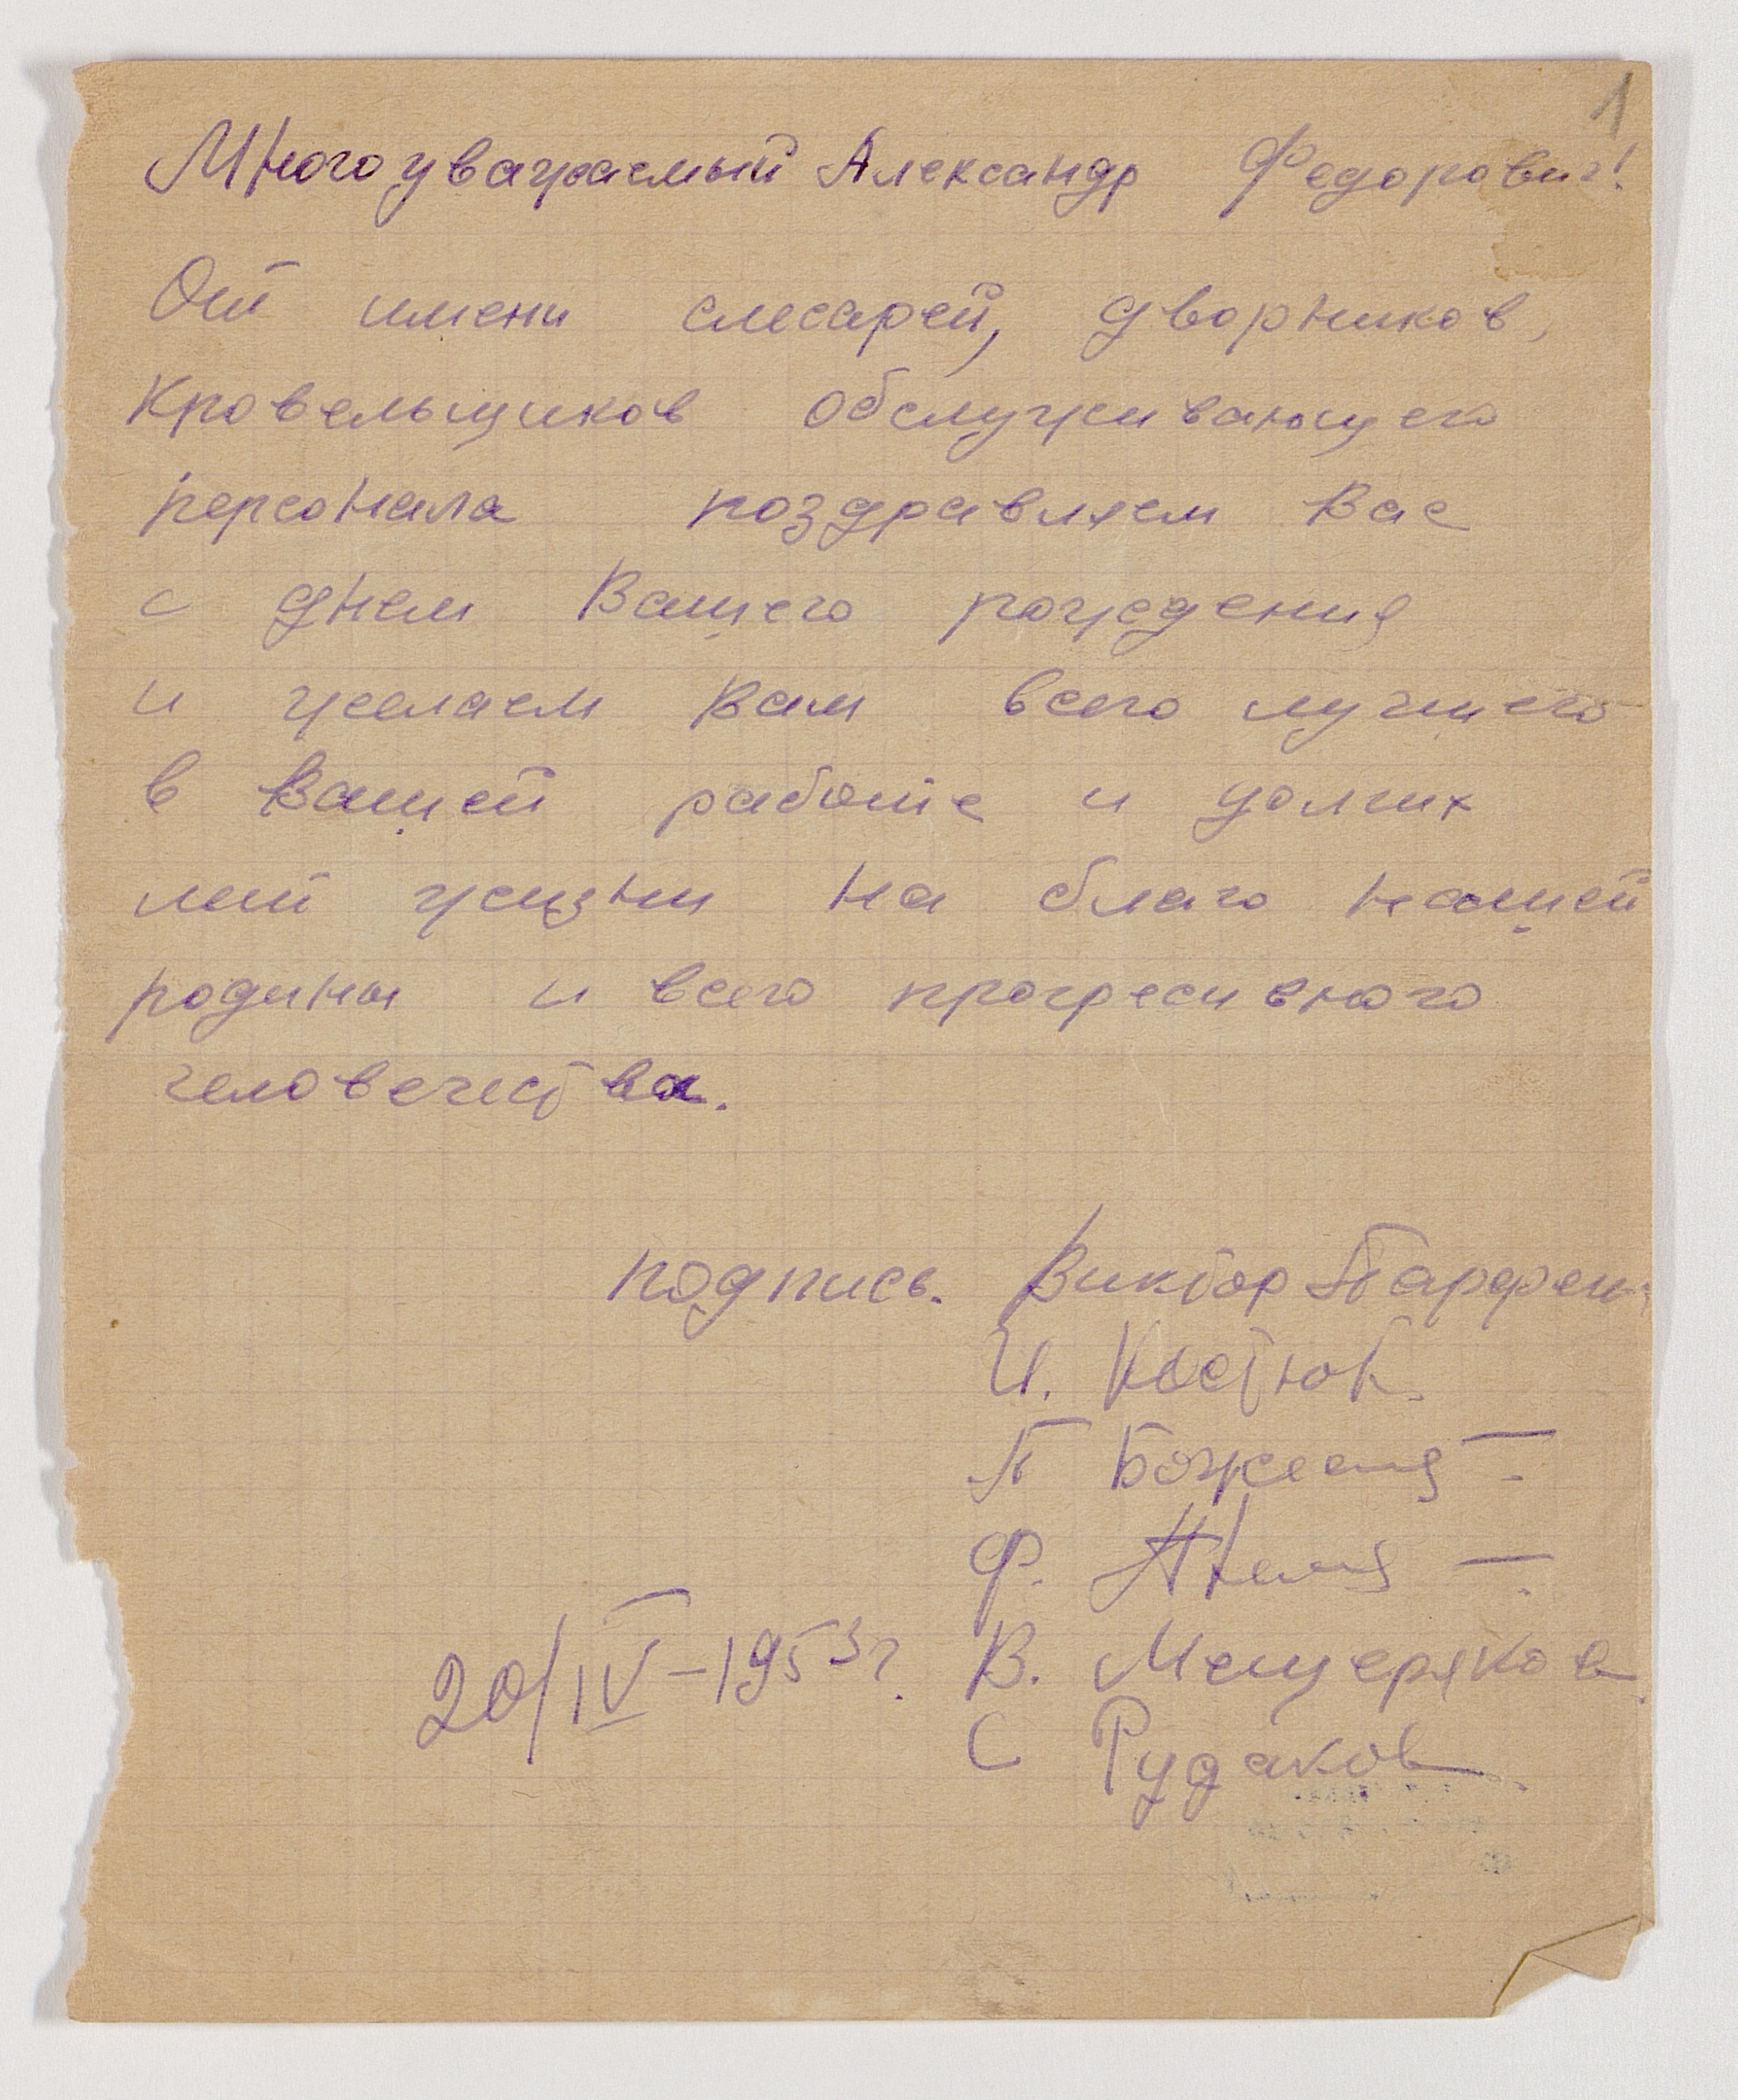 1
Многоуважаемый Александр Федорович!
От имени слесарей, дворников,
Кровельщиков обслуживающего
персонала поздравляем Вас
с днем Вашего рождения
и желаем Вам всего лучшего
в Вашей работе и долгих
лет жизни на благо нашей
родины и всего прогресивного
человечества.
подпись. Виктор Парфен
И. Костюк.
П
Ф.
20/IV–1953 г. В. Мещеряков
С Рудаков